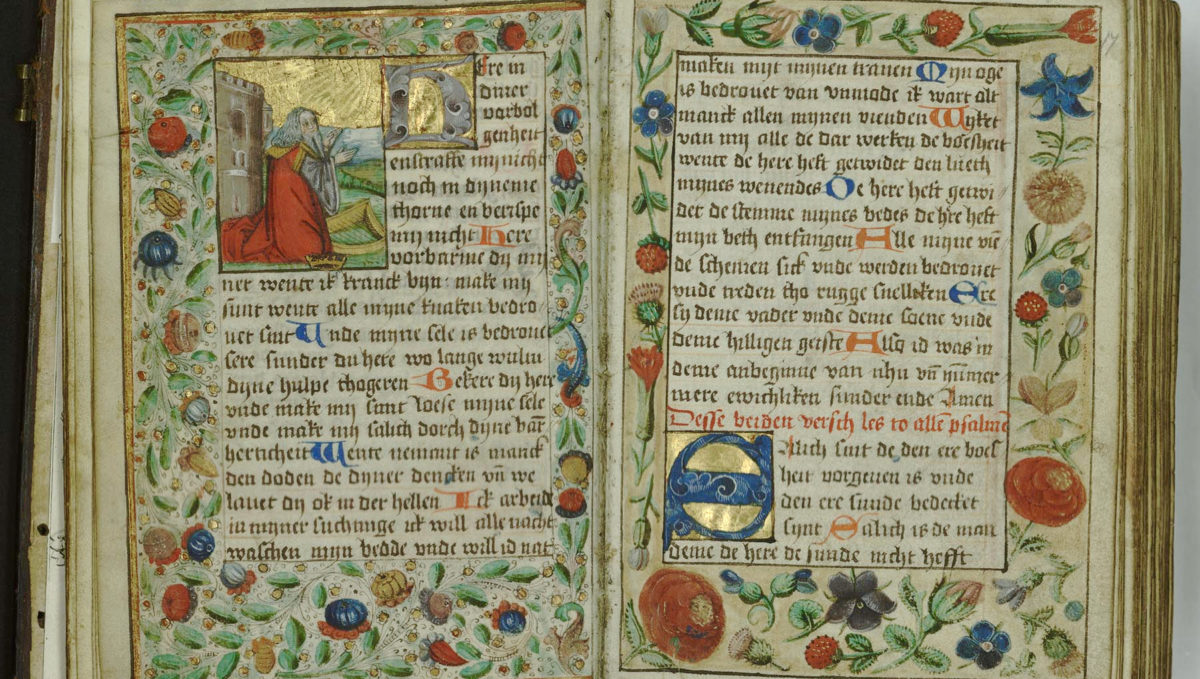 Here in
diner
vorbol
genheit
enstraffe my nicht
noch in dyneme
thorne en berispe
my nicht Here
vorbarme dy my
ner wente ik kranck byn: make my
sunt wente alle myne knaken bedro
uet sint Unde myne sele is bedrouet
sere sunder du here wo lange wultu
dyne hulpe thogeren Bekere dy here
vnde make my sunt loese myne sele
vnde make my salich dorch dyne barm̄
herticheit Wente nemant is manck
den doden de dyner dencken vn̄ we
lauet dy ok in der hellen Ick arbeide
in myner suchtinge ick will alle nacht
waschen myn bedde vnde will id nat
17
maken myt mynen tranen Myn oge
is bedrouet van vnmode ik wart alt
manck allen mynen vienden Wyket
van my alle de dar werken de boesheit
wente de here heft getwidet den lueth
mynes wenendes De here heft getwi
det de stemme mynes bedes de h̄re heft
myn beth entfangen Alle myne vien
de schemen sick vnde werden bedrouet
vnde treden tho rugge snelleken Ere
sy deme vader vnde deme soene vnde
deme hilligen geiste Also id was in
deme anbeginne van nhu vn̄ ym̄mer
mere ewichliken sunder ende Amen
Desse berden versch les to allē psalmē
Salich sint de den ere boes
heit vorgeuen is vnde
den ere sunde bedecket
synt Salich is de man
deme de here de sunde nicht hefft